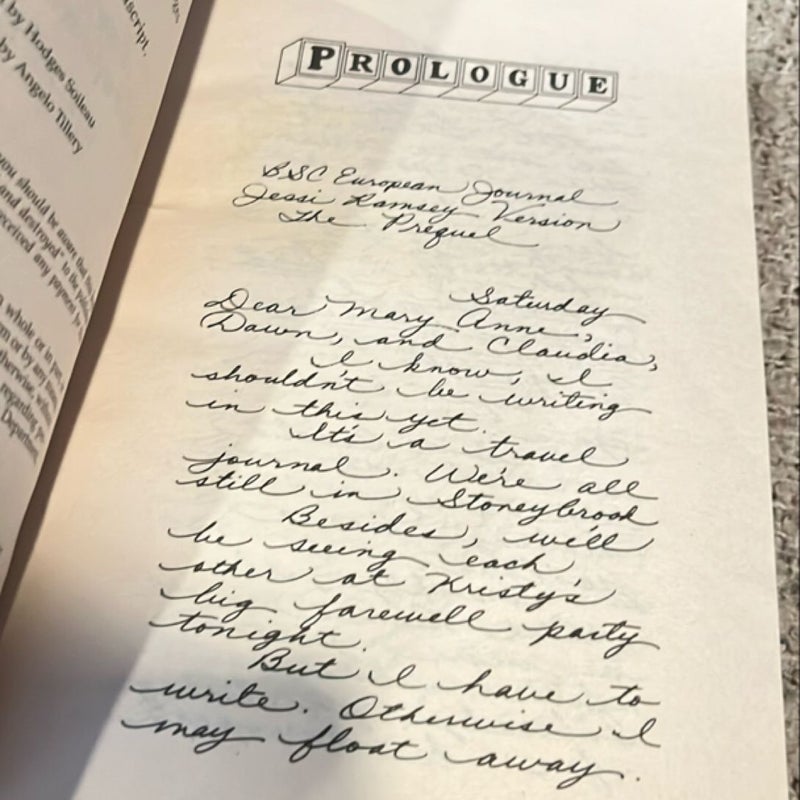 by Hodges Soileau
by Angelo Tillery
you should be aware that
and destroyed" to the
received any payment
whole or in
or by any
otherwise,
regarding
Department
PROLOGUE
BSC European Journal
Jessi Ramsey Version
The Prequel
Saturday
Dear Mary Anne,
Dawn, and Claudia,
I know, I
shouldn't be writing
in this yet.
It's a travel
journal. We're all
still in Stoneybrook
Besides, we'll
be seeing each
other at Kristy's
big farewell party
tonight.
But I have to
write. Otherwise I
may float away.